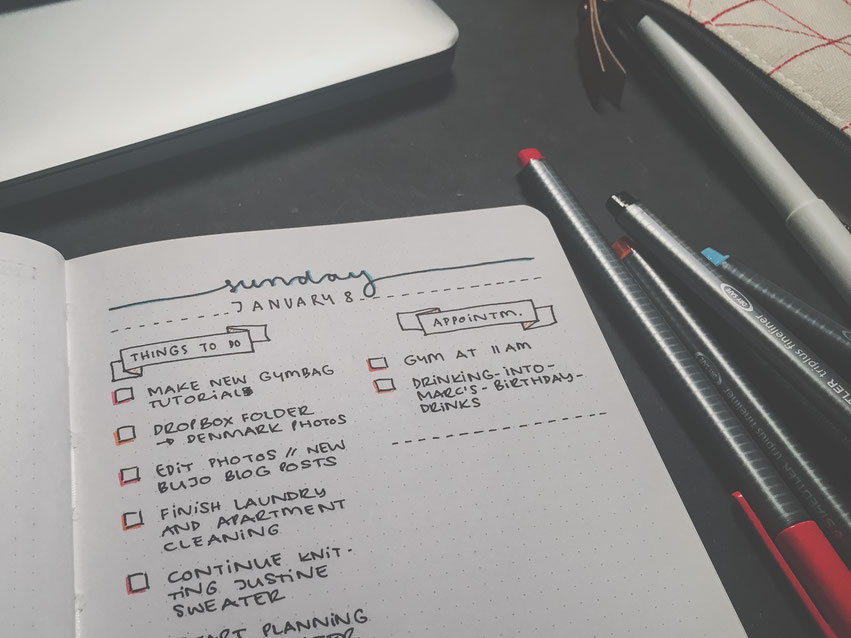 sunday
JANUARY 8
THINGS TO DO
MAKE NEW GYMBAG
TUTORIALS
DROPBOX FOLDER
→ DENMARK PHOTOS
EDIT PHOTOS // NEW
BUJO BLOG POSTS
FINISH LAUNDRY
AND APARTMENT
CLEANING
CONTINUE KNIT-
TING JUSTINE
SWEATER
START PLANNING
APPOINTM.
GYM AT 11 AM
DRINKING-INTO-
MARC'S-BIRTHDAY-
DRINKS
triplus fineliner
STAEDTLER triplus fineliner